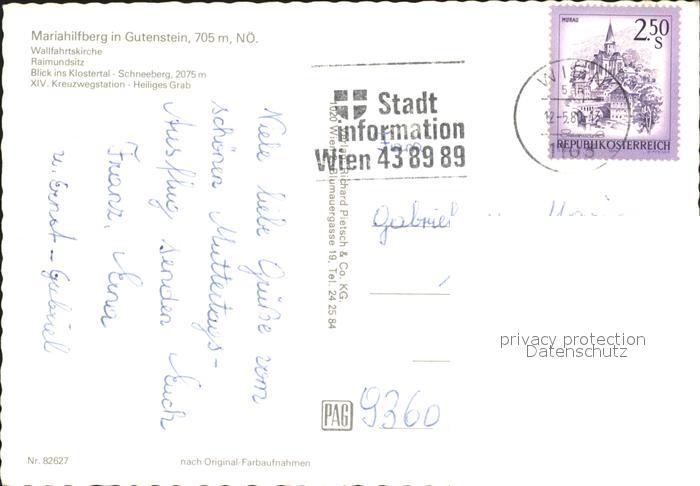 Mariahilfberg in Gutenstein, 705 m, NÖ.
Wallfahrtskirche
Raimundsitz
Blick ins Klostertal - Schneeberg, 2075 m
XIV. Kreuzwegstation - Heiliges Grab
Viele liebe Grüße vom
schönen Muttertags-
Ausflug senden Euch
Franz,
u. Ernst - Gabriel
Nr. 82627
nach Original-Farbaufnahmen
Verlag Richard Pietsch & Co. KG.
1020 Wien, Blumauergasse 19, Tel. 24 25 84
PAG
Stadt
information
Wien 43 89 89
WIEN
MURAU
2.50
S
REPUBLIK ÖSTERREICH
Gabriel
9360
privacy protection
Datenschutz